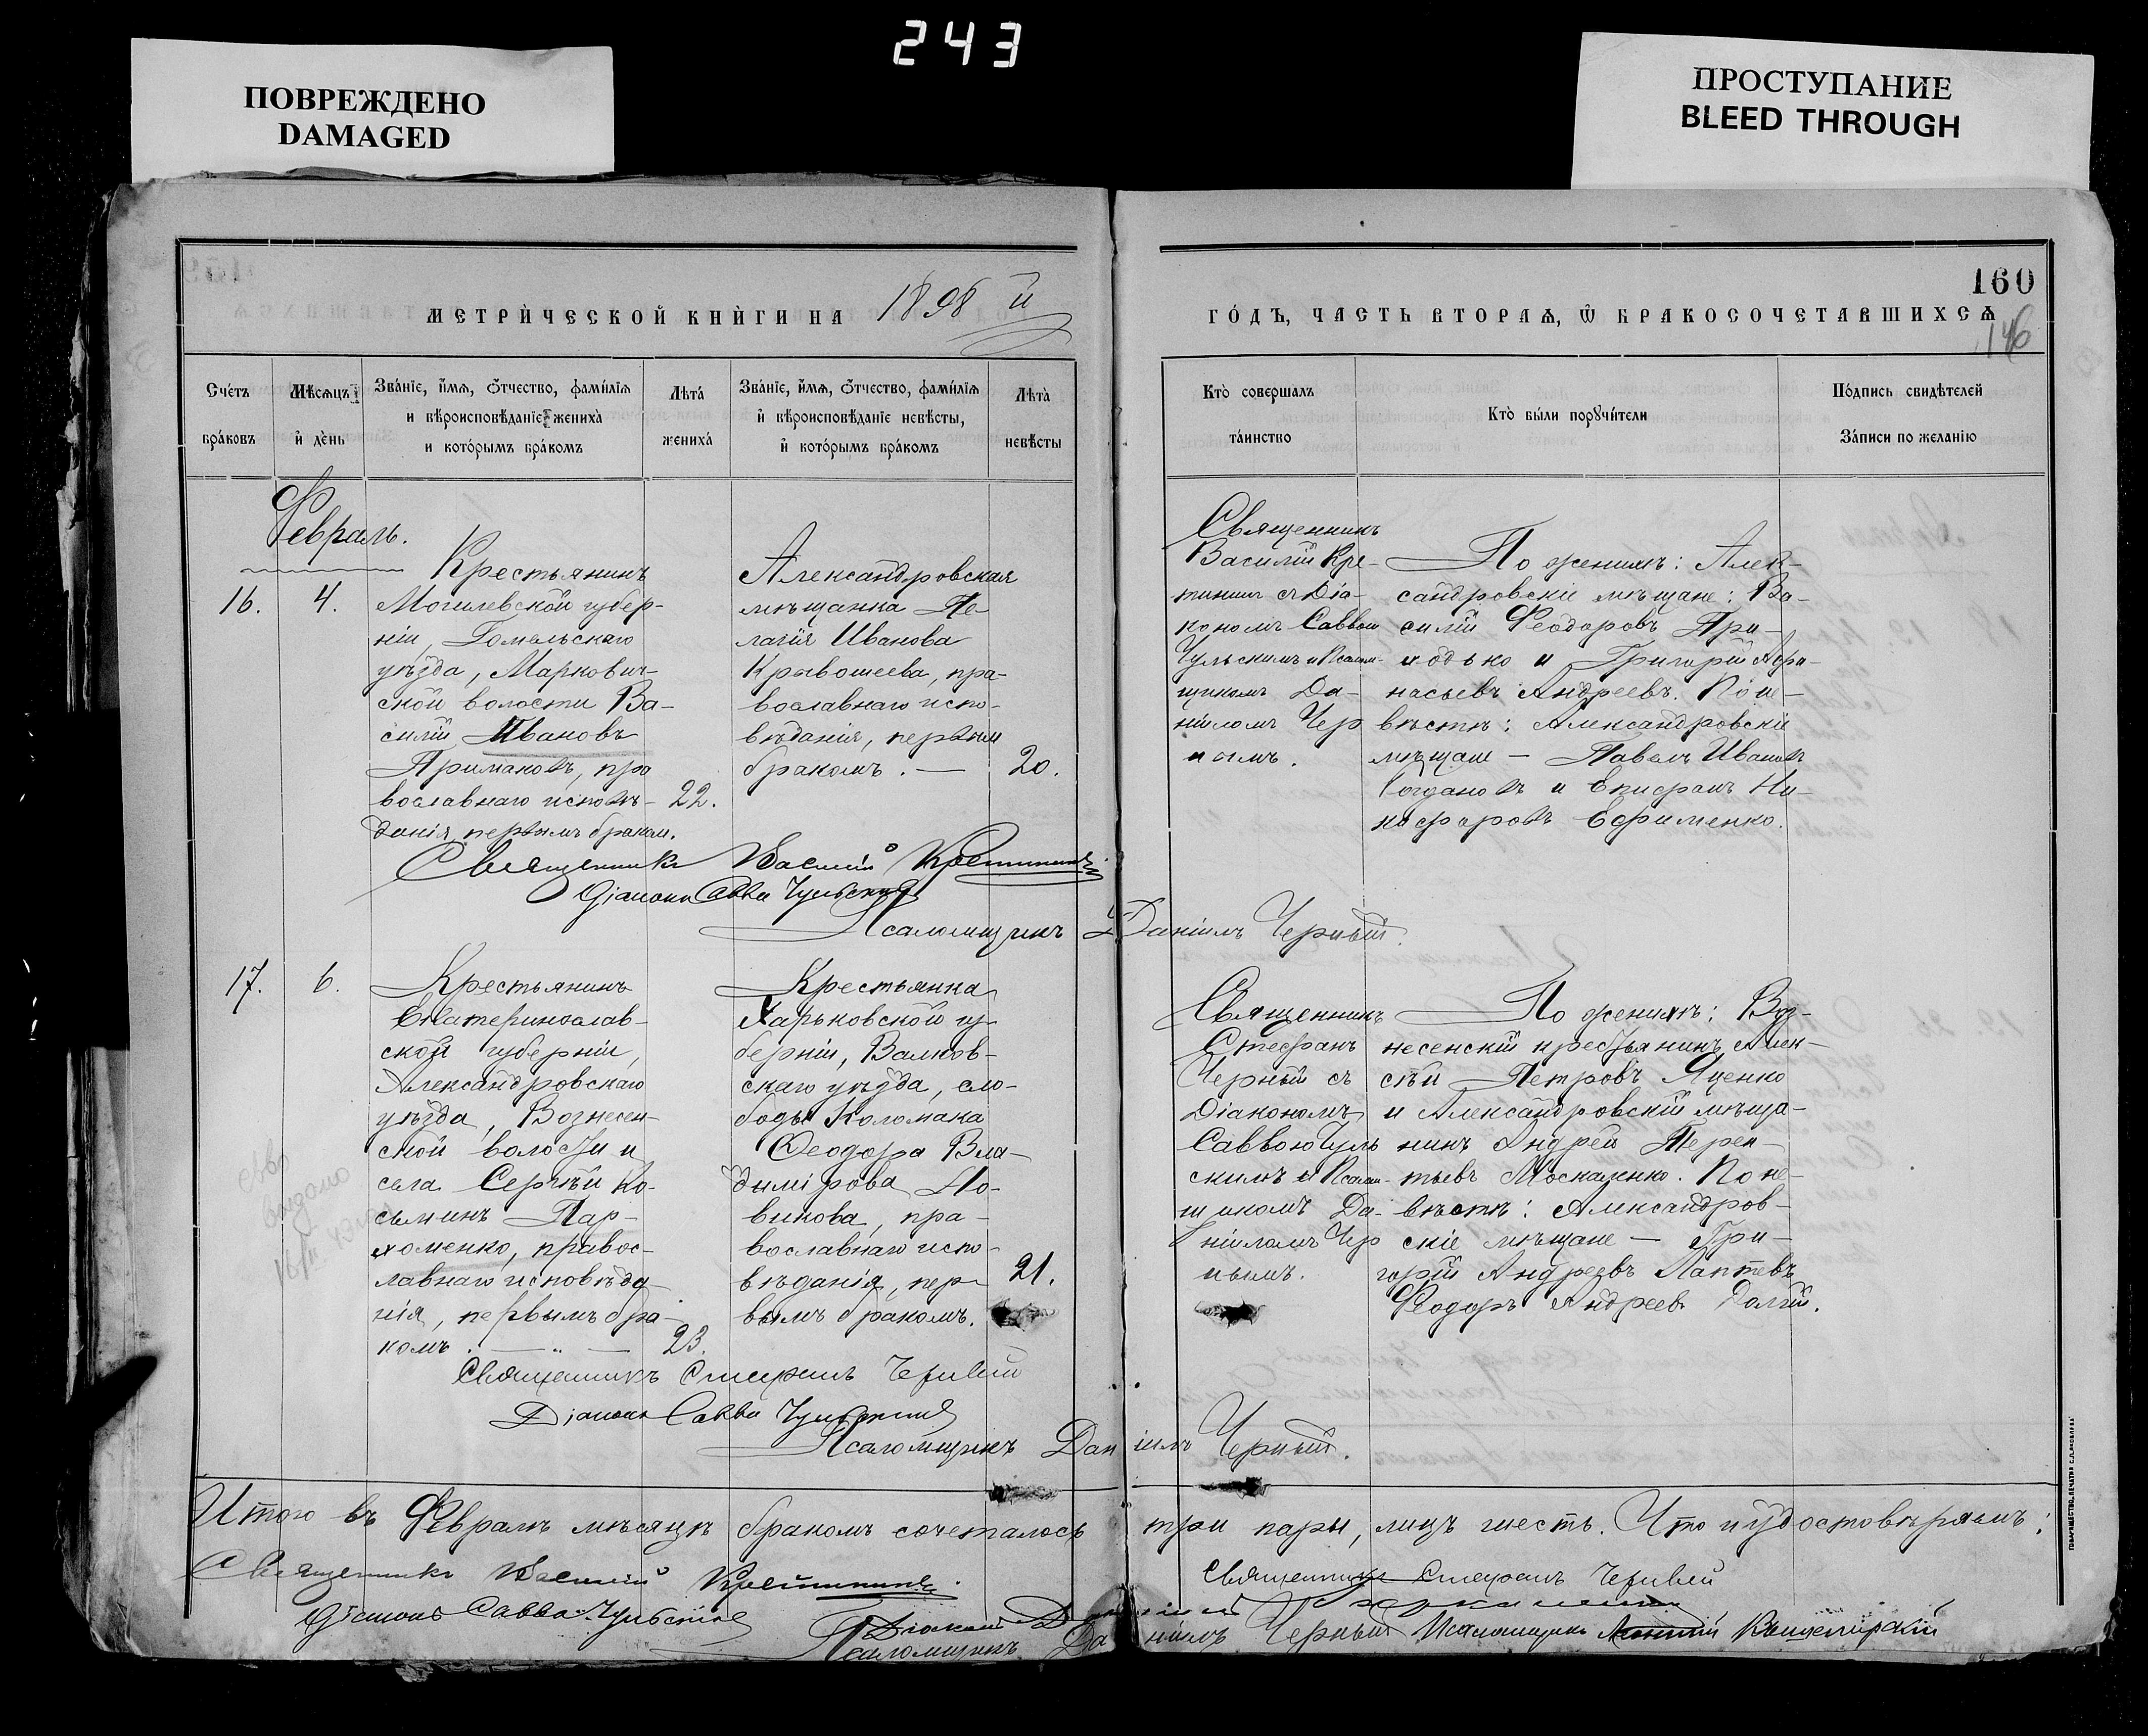 243
ПОВРЕЖДЕНО
DAMAGED
ПРОСТУПАНИЕ
BLEED THROUGH
160
146
МЕТРИ́ЧЕСКОЙ КНИ́ГИ НА 1898 й
ГО́ДЪ, ЧАСТЬ ВТОРАѦ, Ѿ БРАКОСОЧЕТАВШИХСѦ
Сче́тъ
бра́ковъ
Мѣсѧцъ
и҆ де́нь
Зва́нїе, и҆́мѧ, ѻ҆́тчество, фамѝлїѧ
и вѣроисповѣданїе жениха̀
и кото́рымъ бра́комъ
Лѣта́
жениха́
Зва́нїе, и҆́мѧ, ѻ҆́тчество, фамѝлїѧ
и҆ вѣроисповѣданїе невѣ́сты,
и҆ кото́рымъ бра́комъ
Лѣта̀
невѣ́сты
Кто̀ соверша́лъ
та́инство
Кто̀ бы́ли порꙋчи́тели
По́дпись свидѣ́телей
За́писи по жела́нїю
Февраль.
16.
4.
Крестьянинъ
Могилевской губер-
ніи, Гомельскаго
уѣзда, Маркович-
ской волости Ва-
силій Ивановъ
Примаковъ, пра
вославнаго исповѣ-
данія, первымъ браком.
22.
Александровская
мѣщанка Пе
лагія Иванова
Кривошеева, пра-
вославнаго испо-
вѣданія, первым
бракомъ. —
20.
Священникъ
Василій Кре-
тининъ съ Діа-
кономъ Саввою
Чульскимъ и Псалм-
щикомъ Да-
ніиломъ Чер
нымъ.
По женихѣ: Алек-
сандровскіе мѣщане: Ва-
силій Феодоровъ При-
ходько и Григорій Афа-
насьевъ Андреевъ. По не-
вѣстѣ: Александровскіе
мѣщане — Павелъ Ивановъ
Богдановъ и Епифанъ Ни-
кифоровъ Ефименко.
Священникъ Василій Кретининъ
Діаконъ Савва Чульскій
Псаломщикъ Даніилъ Черный.
17.
6.
Крестьянинъ
Екатеринослав-
ской губерніи,
Александровскаго
уѣзда, Вознесен-
ской волости и
села Сергѣй Ко-
сьминъ Пар-
хоменко, правос-
лавнаго исповѣда-
нія, первымъ бра-
комъ. — " —
23.
Крестьянка
Харьковской гу-
берніи, Валков-
скаго уѣзда, сло-
боды Коломака
Феодора Вла-
димірова Но-
викова, пра-
вославнаго испо-
вѣданія, пер-
вымъ бракомъ.
21.
Священникъ
Стефанъ
Черный съ
Діакономъ
Саввою Чуль
скимъ и Псалм-
щикомъ Да-
ніиломъ Чер
нымъ.
По женихѣ: Воз-
несенскій крестьянинъ Алек-
сѣй Петровъ Яценко
и Александровскій мѣща-
нинъ Андрей Терен-
тьевъ Москаленко. По не-
вѣстѣ: Александров-
скіе мѣщане — Гри-
горій Андреевъ Лаптевъ
Феодоръ Андреев Долгій.
Священникъ Стефанъ Черный
Діаконъ Савва Чульскій
Псаломщикъ Даніилъ Черный.
Итого въ Февралѣ мѣсяцѣ бракомъ сочеталось три пары, лицъ шесть. Что и удостовѣряемъ:
Священникъ Василій Кретининъ.
Священникъ Стефанъ Черный
Діаконъ Савва Чульскій
Псаломщикъ Даніилъ Черный Псаломщикъ